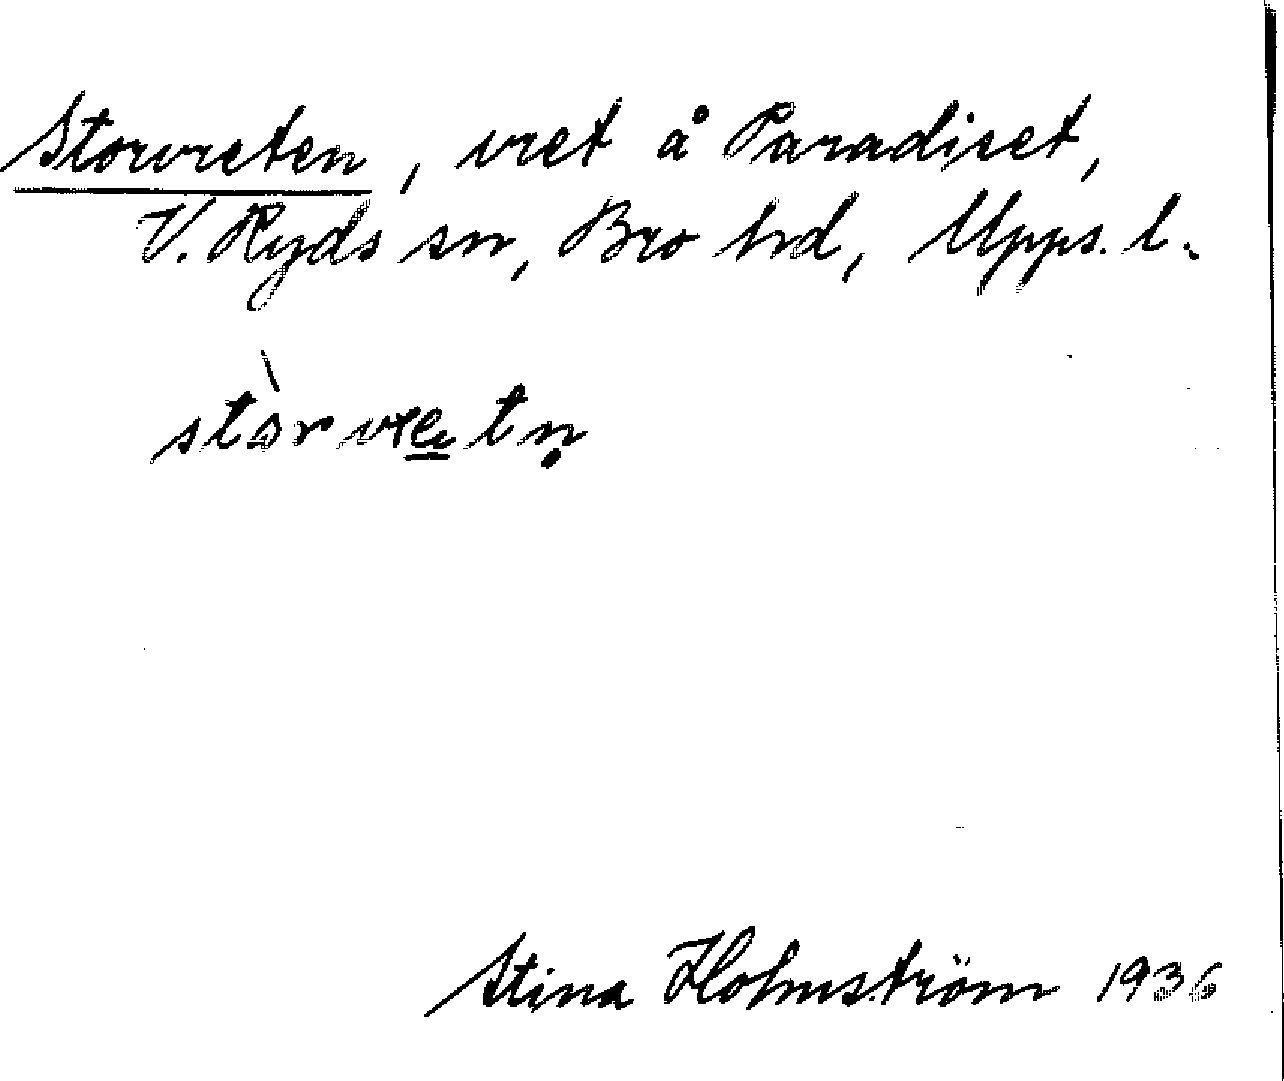 Storvreten, vret å Paradiset,
V. Ryds sn, Bro hd, Upps. l.
stòrvre̲tṇ
Stina Holmström 1936